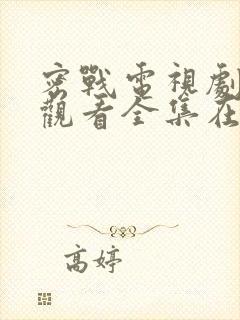 密戰電視劇
觀看全集在
高婷